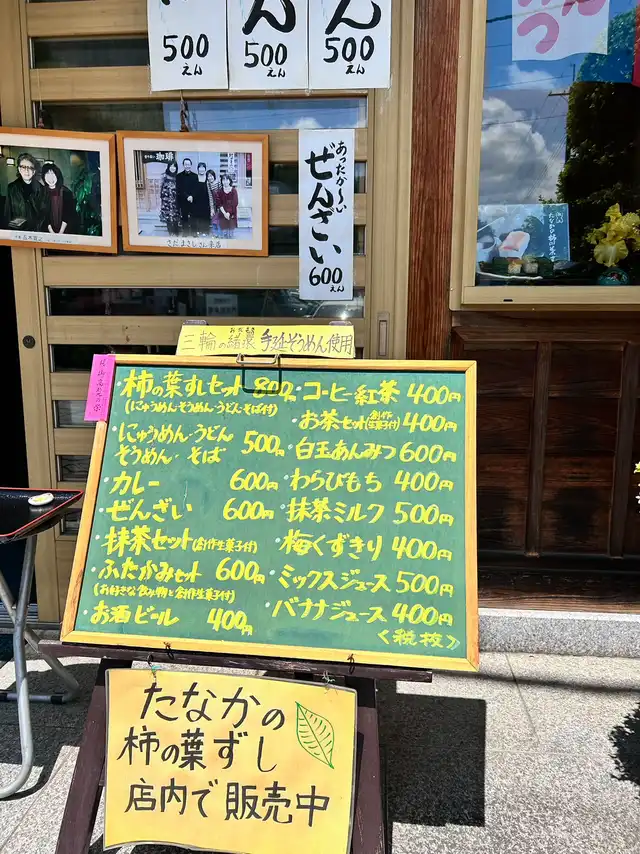 ん
ん
500えん
500えん
500えん
あったか〜い
ぜんざい
600えん
珈琲
さだまさしさん来店
三輪の緒環 手延そうめん使用
おだまき
・柿の葉すしセット 800円
(にゅうめん・そうめん・うどん・そば付)
・にゅうめん・うどん
そうめん・そば 500円
・カレー 600円
・ぜんざい 600円
・抹茶セット(創作生菓子付)
・ふたかみセット 600円
(お好きな飲み物と創作生菓子付)
・お酒ビール 400円
・コーヒー紅茶 400円
・お茶セット(創作生菓子付) 400円
・白玉あんみつ 600円
・わらびもち 400円
・抹茶ミルク 500円
・梅くずきり 400円
・ミックスジュース 500円
・バナナジュース 400円
<税抜>
たなかの
柿の葉ずし
店内で販売中